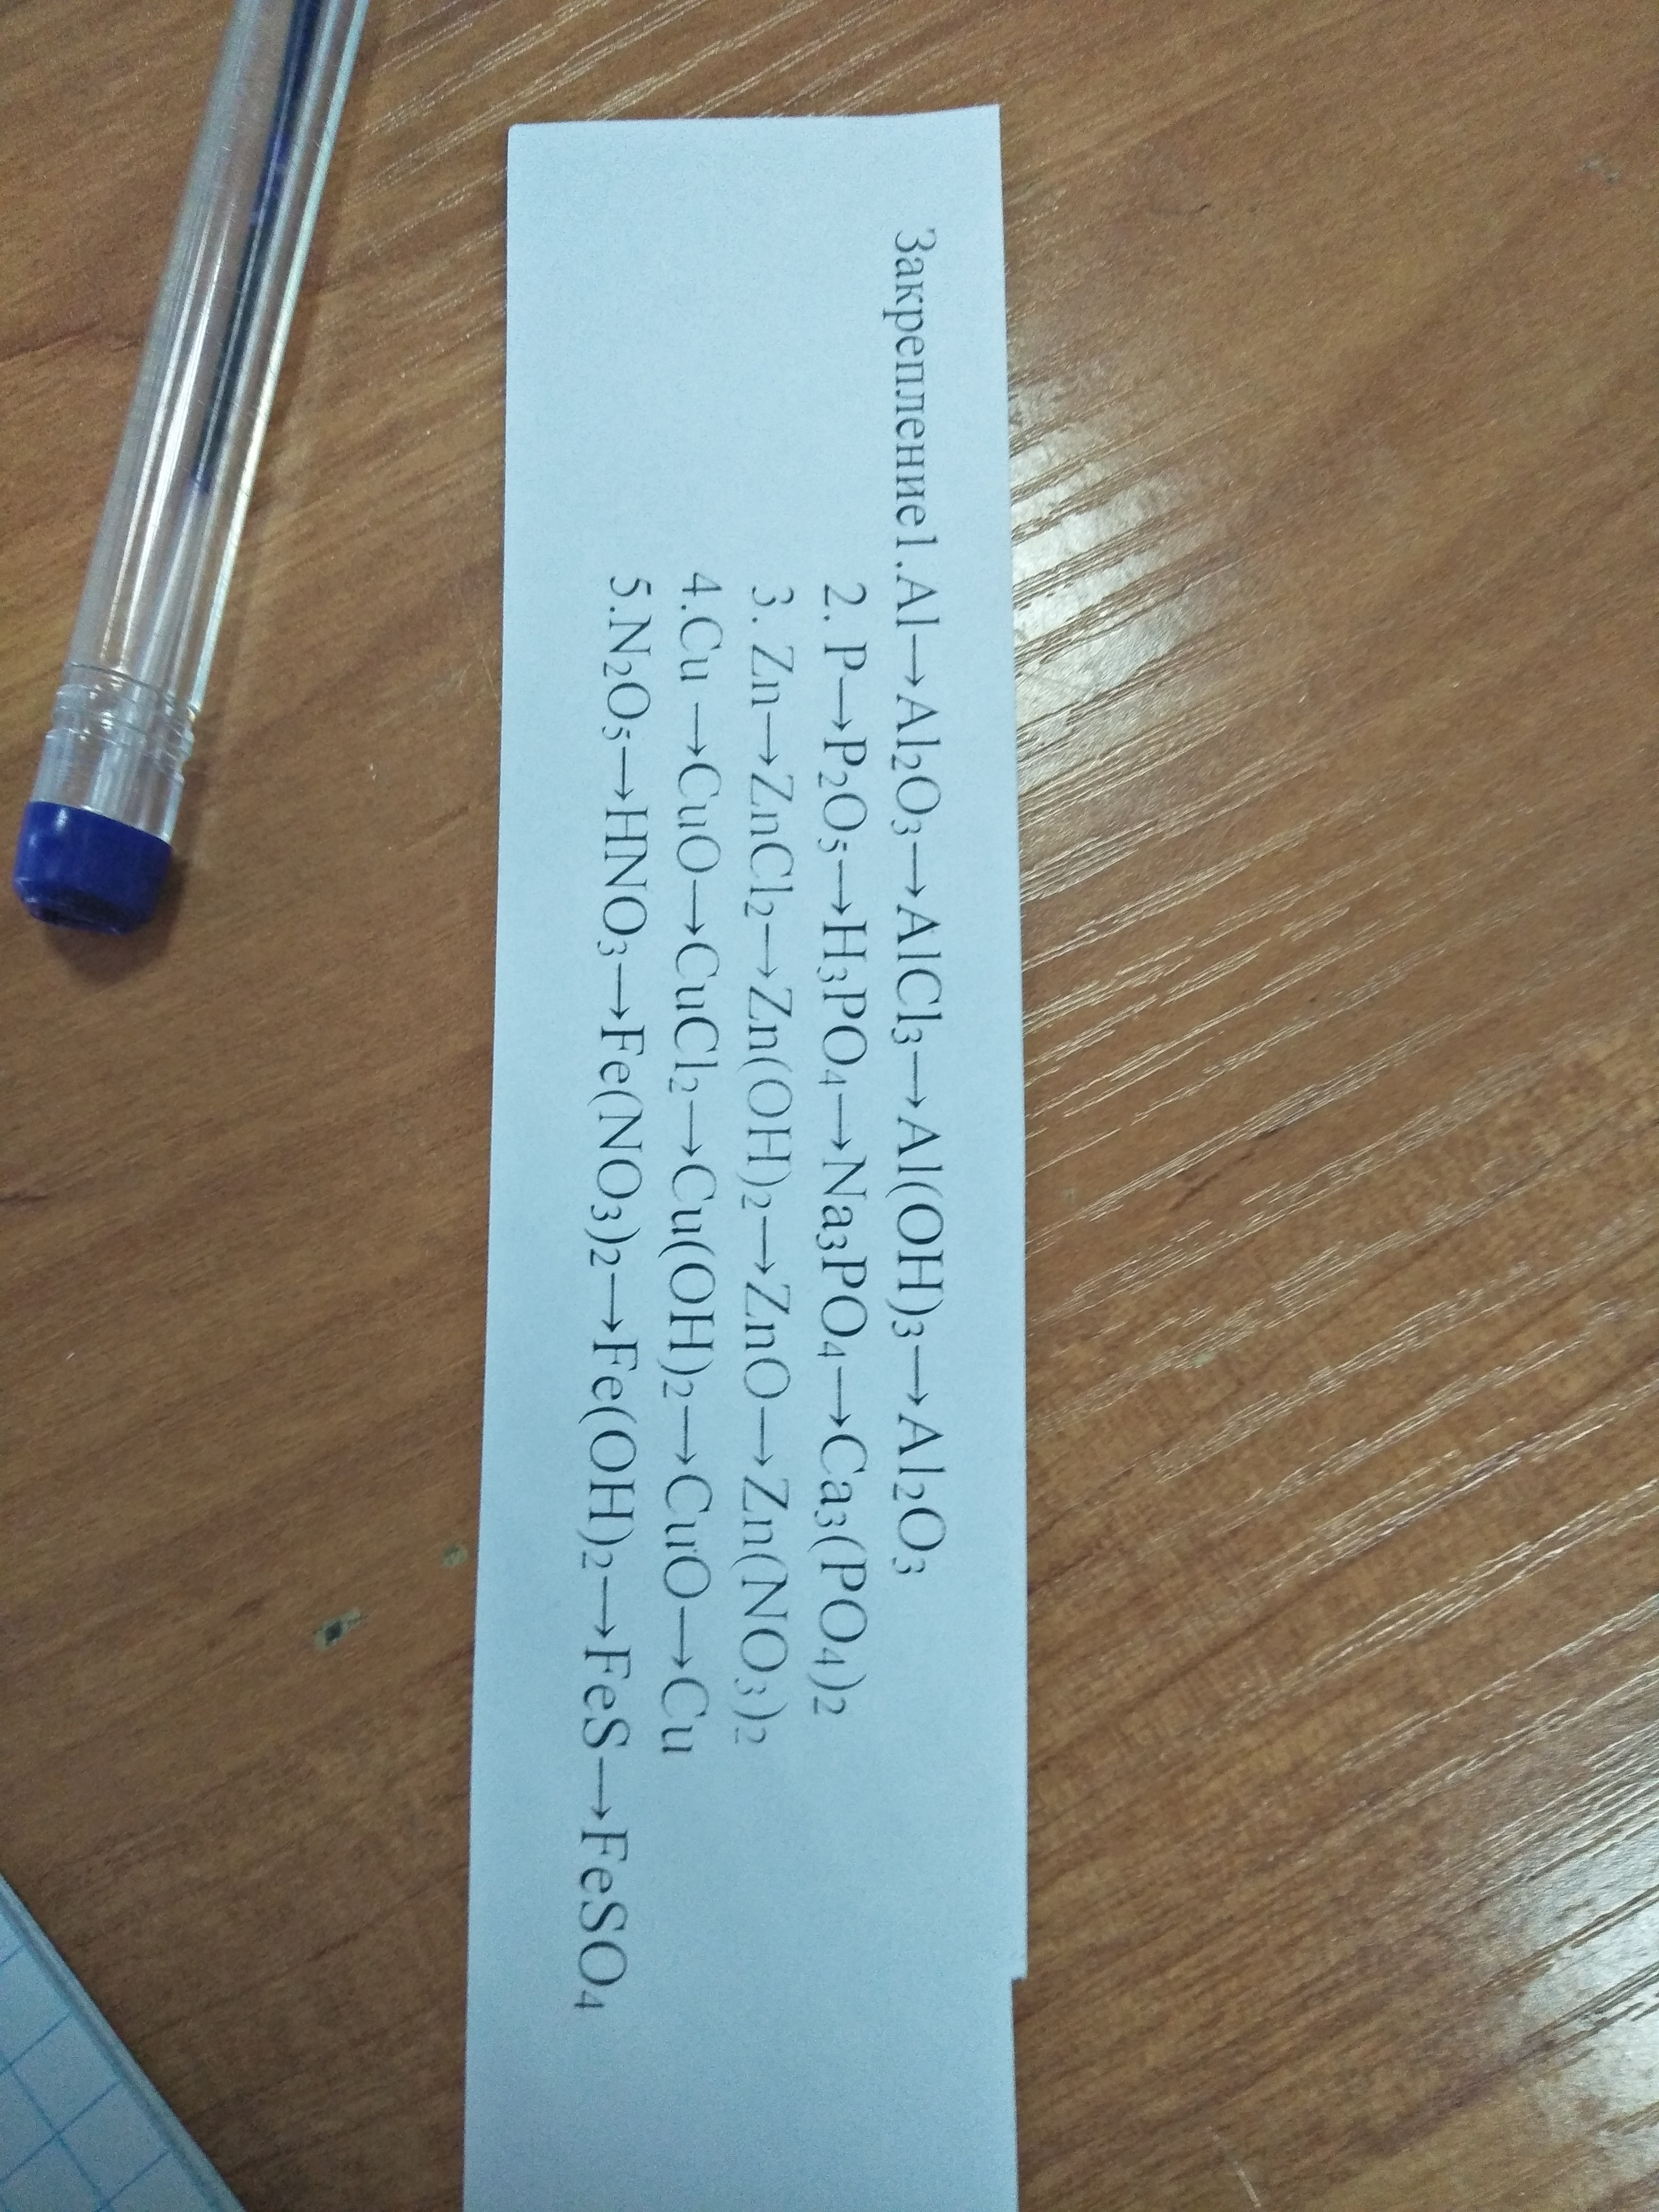 Закрепление1.Al→Al₂O₃→AlCl₃→Al(OH)₃→Al₂O₃
2. P→P₂O₅→H₃PO₄→Na₃PO₄→Ca₃(PO₄)₂
3. Zn→ZnCl₂→Zn(OH)₂→ZnO→Zn(NO₃)₂
4.Cu →CuO→CuCl₂→Cu(OH)₂→CuO→Cu
5.N₂O₅→HNO₃→Fe(NO₃)₂→Fe(OH)₂→FeS→FeSO₄